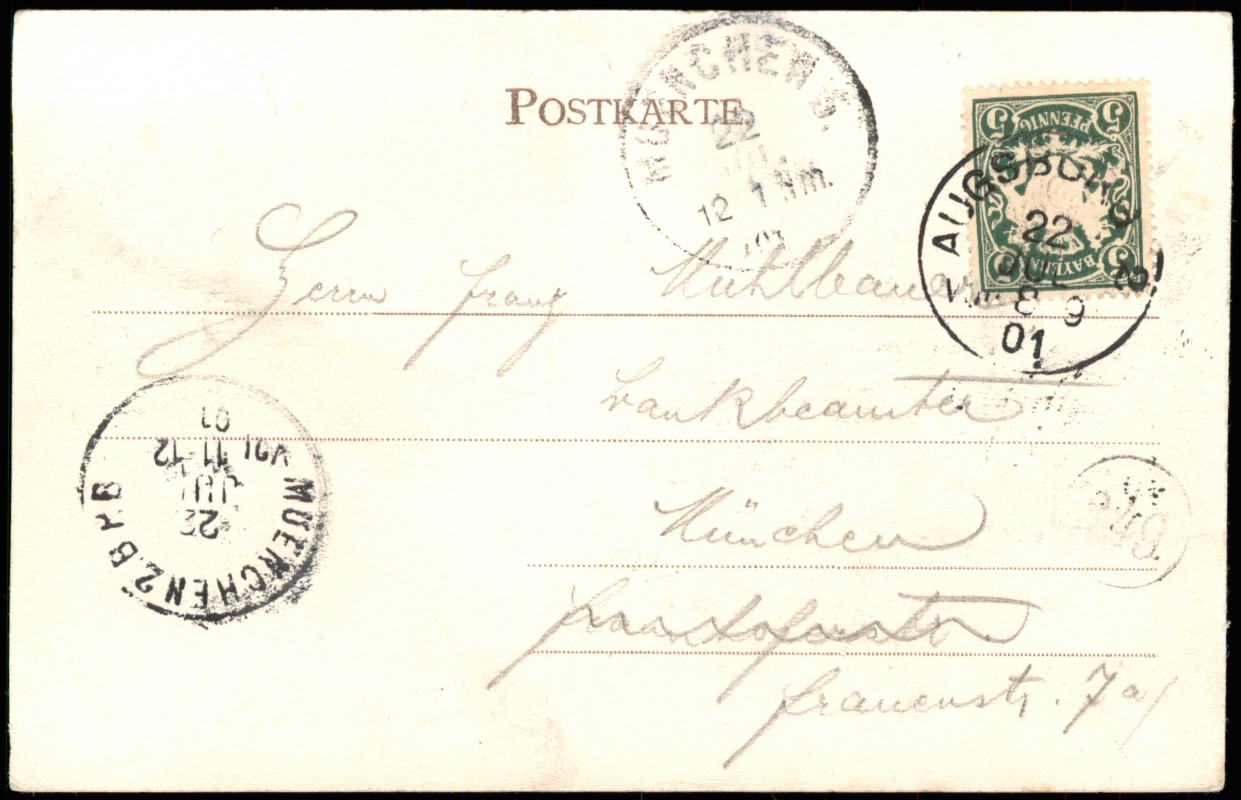 POSTKARTE.
MUENCHEN 5.
22
JUL
12 1 Nm.
01
5 PFENNIG 5
5 BAYERN 5
AUGSBURG 2
22
JUL
VM 8 9
01
Herrn Franz Mühlbauer
Bankbeamter
München
Frauenstr. 7a/
MUENCHEN 2. B.HB
22
JUL
Vor 11-12
01